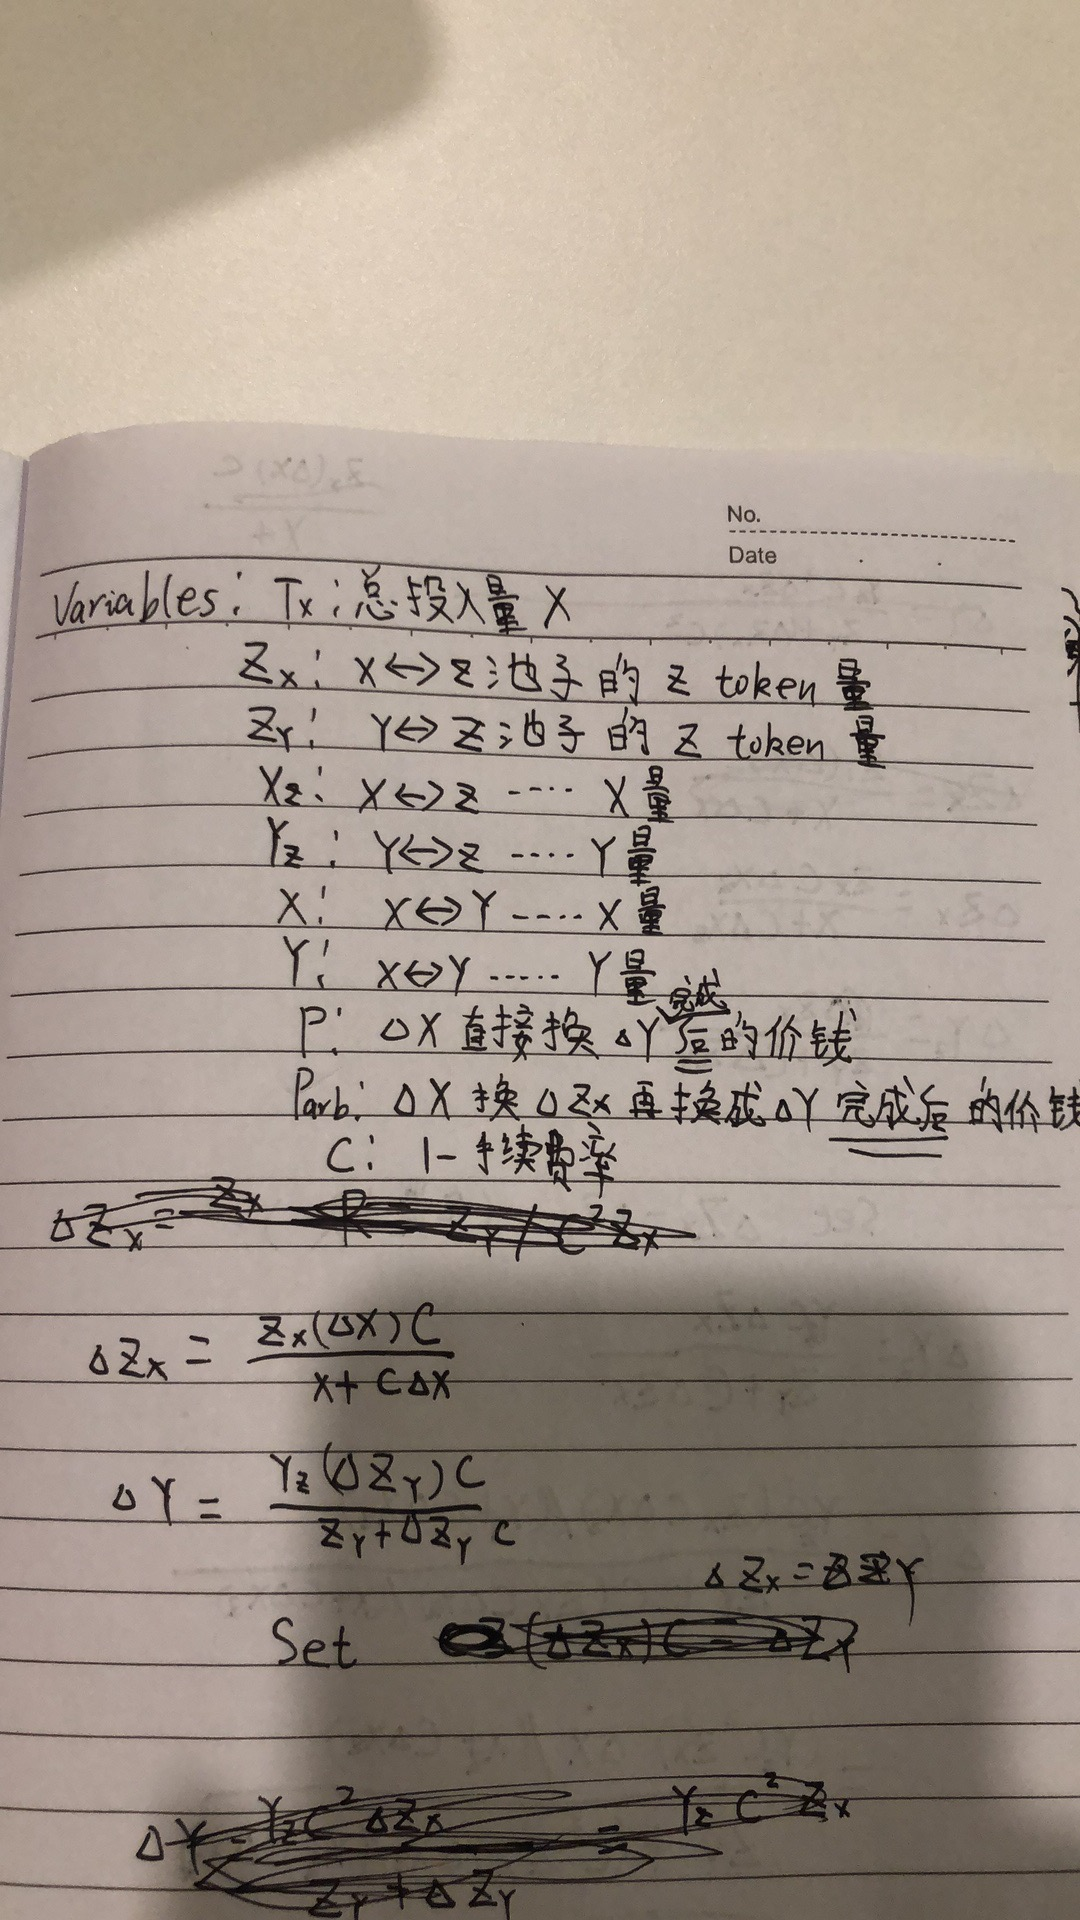 No.
Date
Variables: Tx: 总投入量 X
Zx: X↔Z池子的 Z token 量
ZY: Y↔Z池子的 Z token 量
Xz: X↔Z ···· X量
Yz: Y↔Z ···· Y量
X: X↔Y ···· X量
Y: X↔Y ····· Y量
P: ΔX 直接换 ΔY 完成后的价钱
Parb: ΔX 换 ΔZx 再换成 ΔY 完成后 的价钱
C: 1-手续费率
ΔZx = Zx(ΔX)C / X + CΔX
ΔY = Yz(ΔZY)C / ZY + ΔZY C
ΔZx = ΔZY
Set